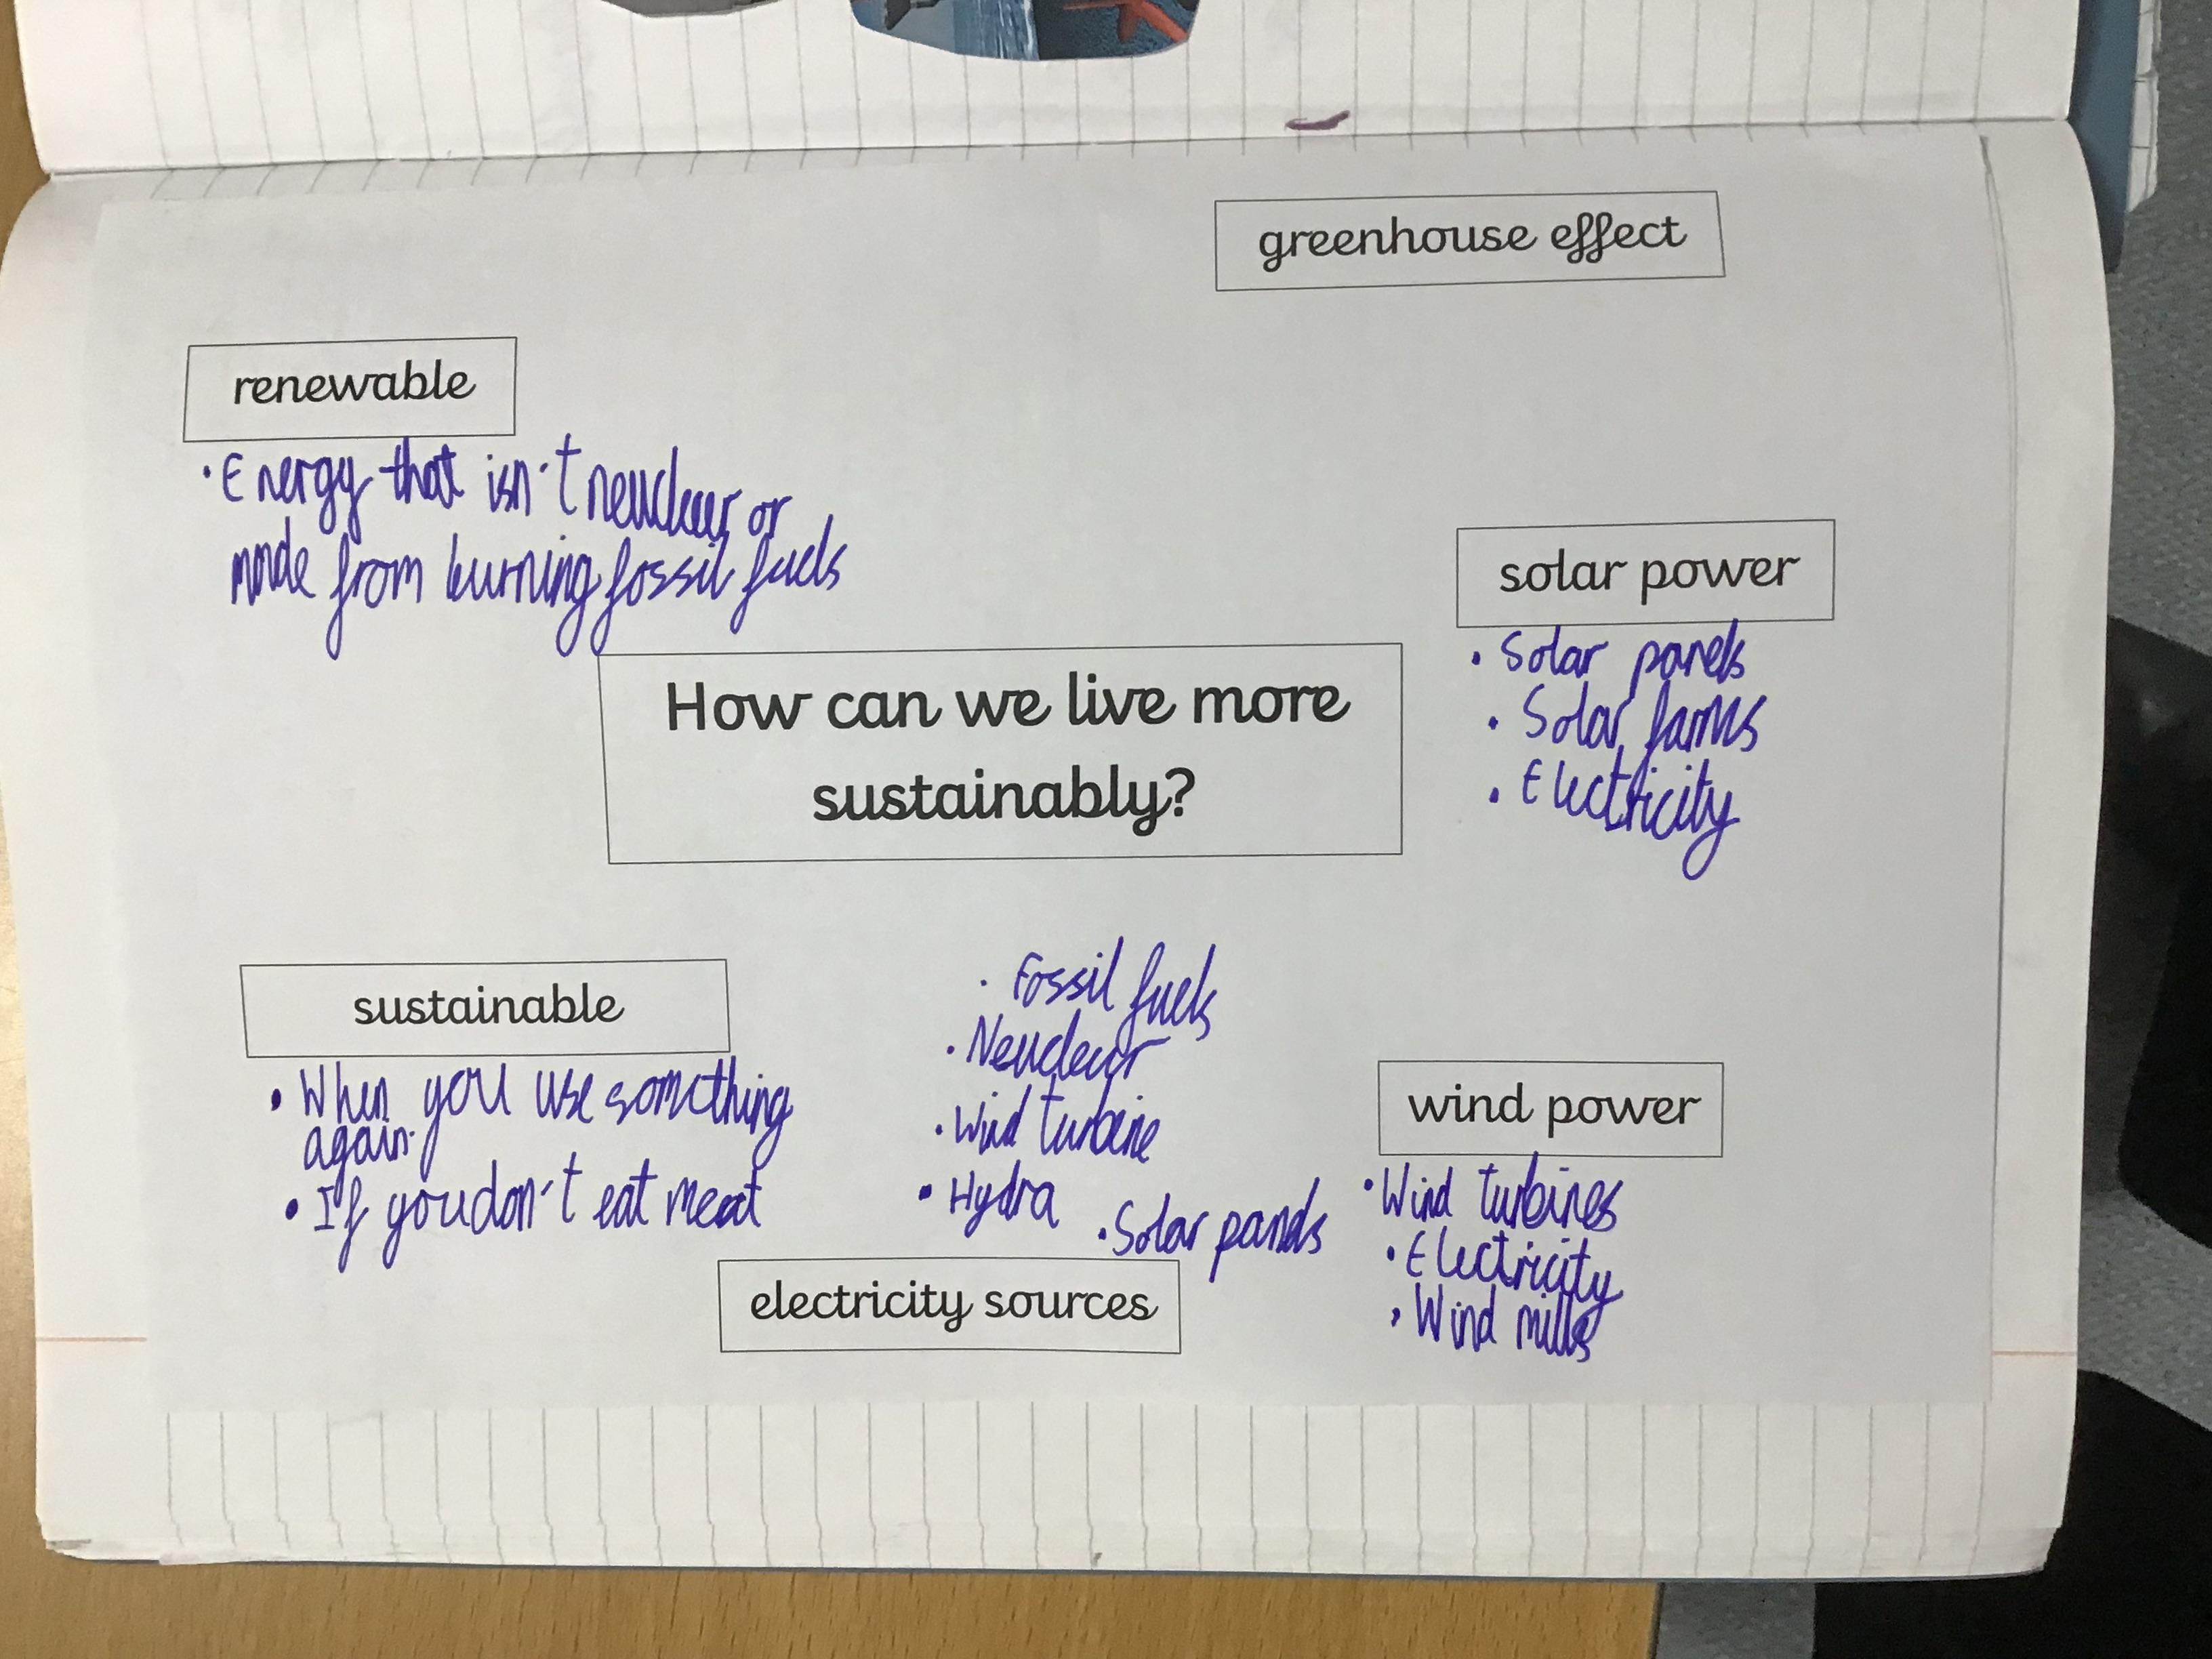 greenhouse effect
renewable
• Energy that isn't neuclear or
made from burning fossil fuels
solar power
• Solar panels
• Solar farms
• Electricity
How can we live more
sustainably?
sustainable
• When you use something
again.
• If you don't eat meat
• Fossil fuels
• Neuclear
• Wind turbine
• Hydra
• Solar panels
electricity sources
wind power
• Wind turbines
• Electricity
• Wind mills